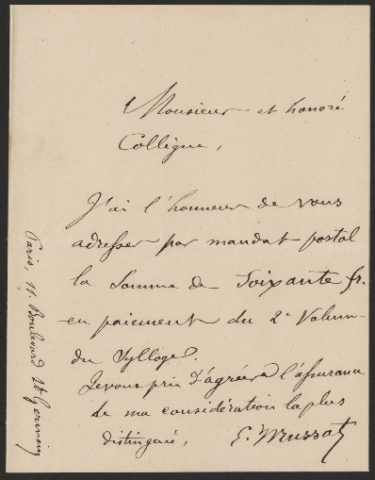 Monsieur et honoré
Collègue,
J'ai l'honneur de vous
adresser par mandat postal
la somme de soixante fr.
en paiement du 2e Volume
du Sylloge.
Je vous prie d'agréer l'assurance
de ma considération la plus
distinguée, E. Mussat
Paris, 11. Boulevard St Germain